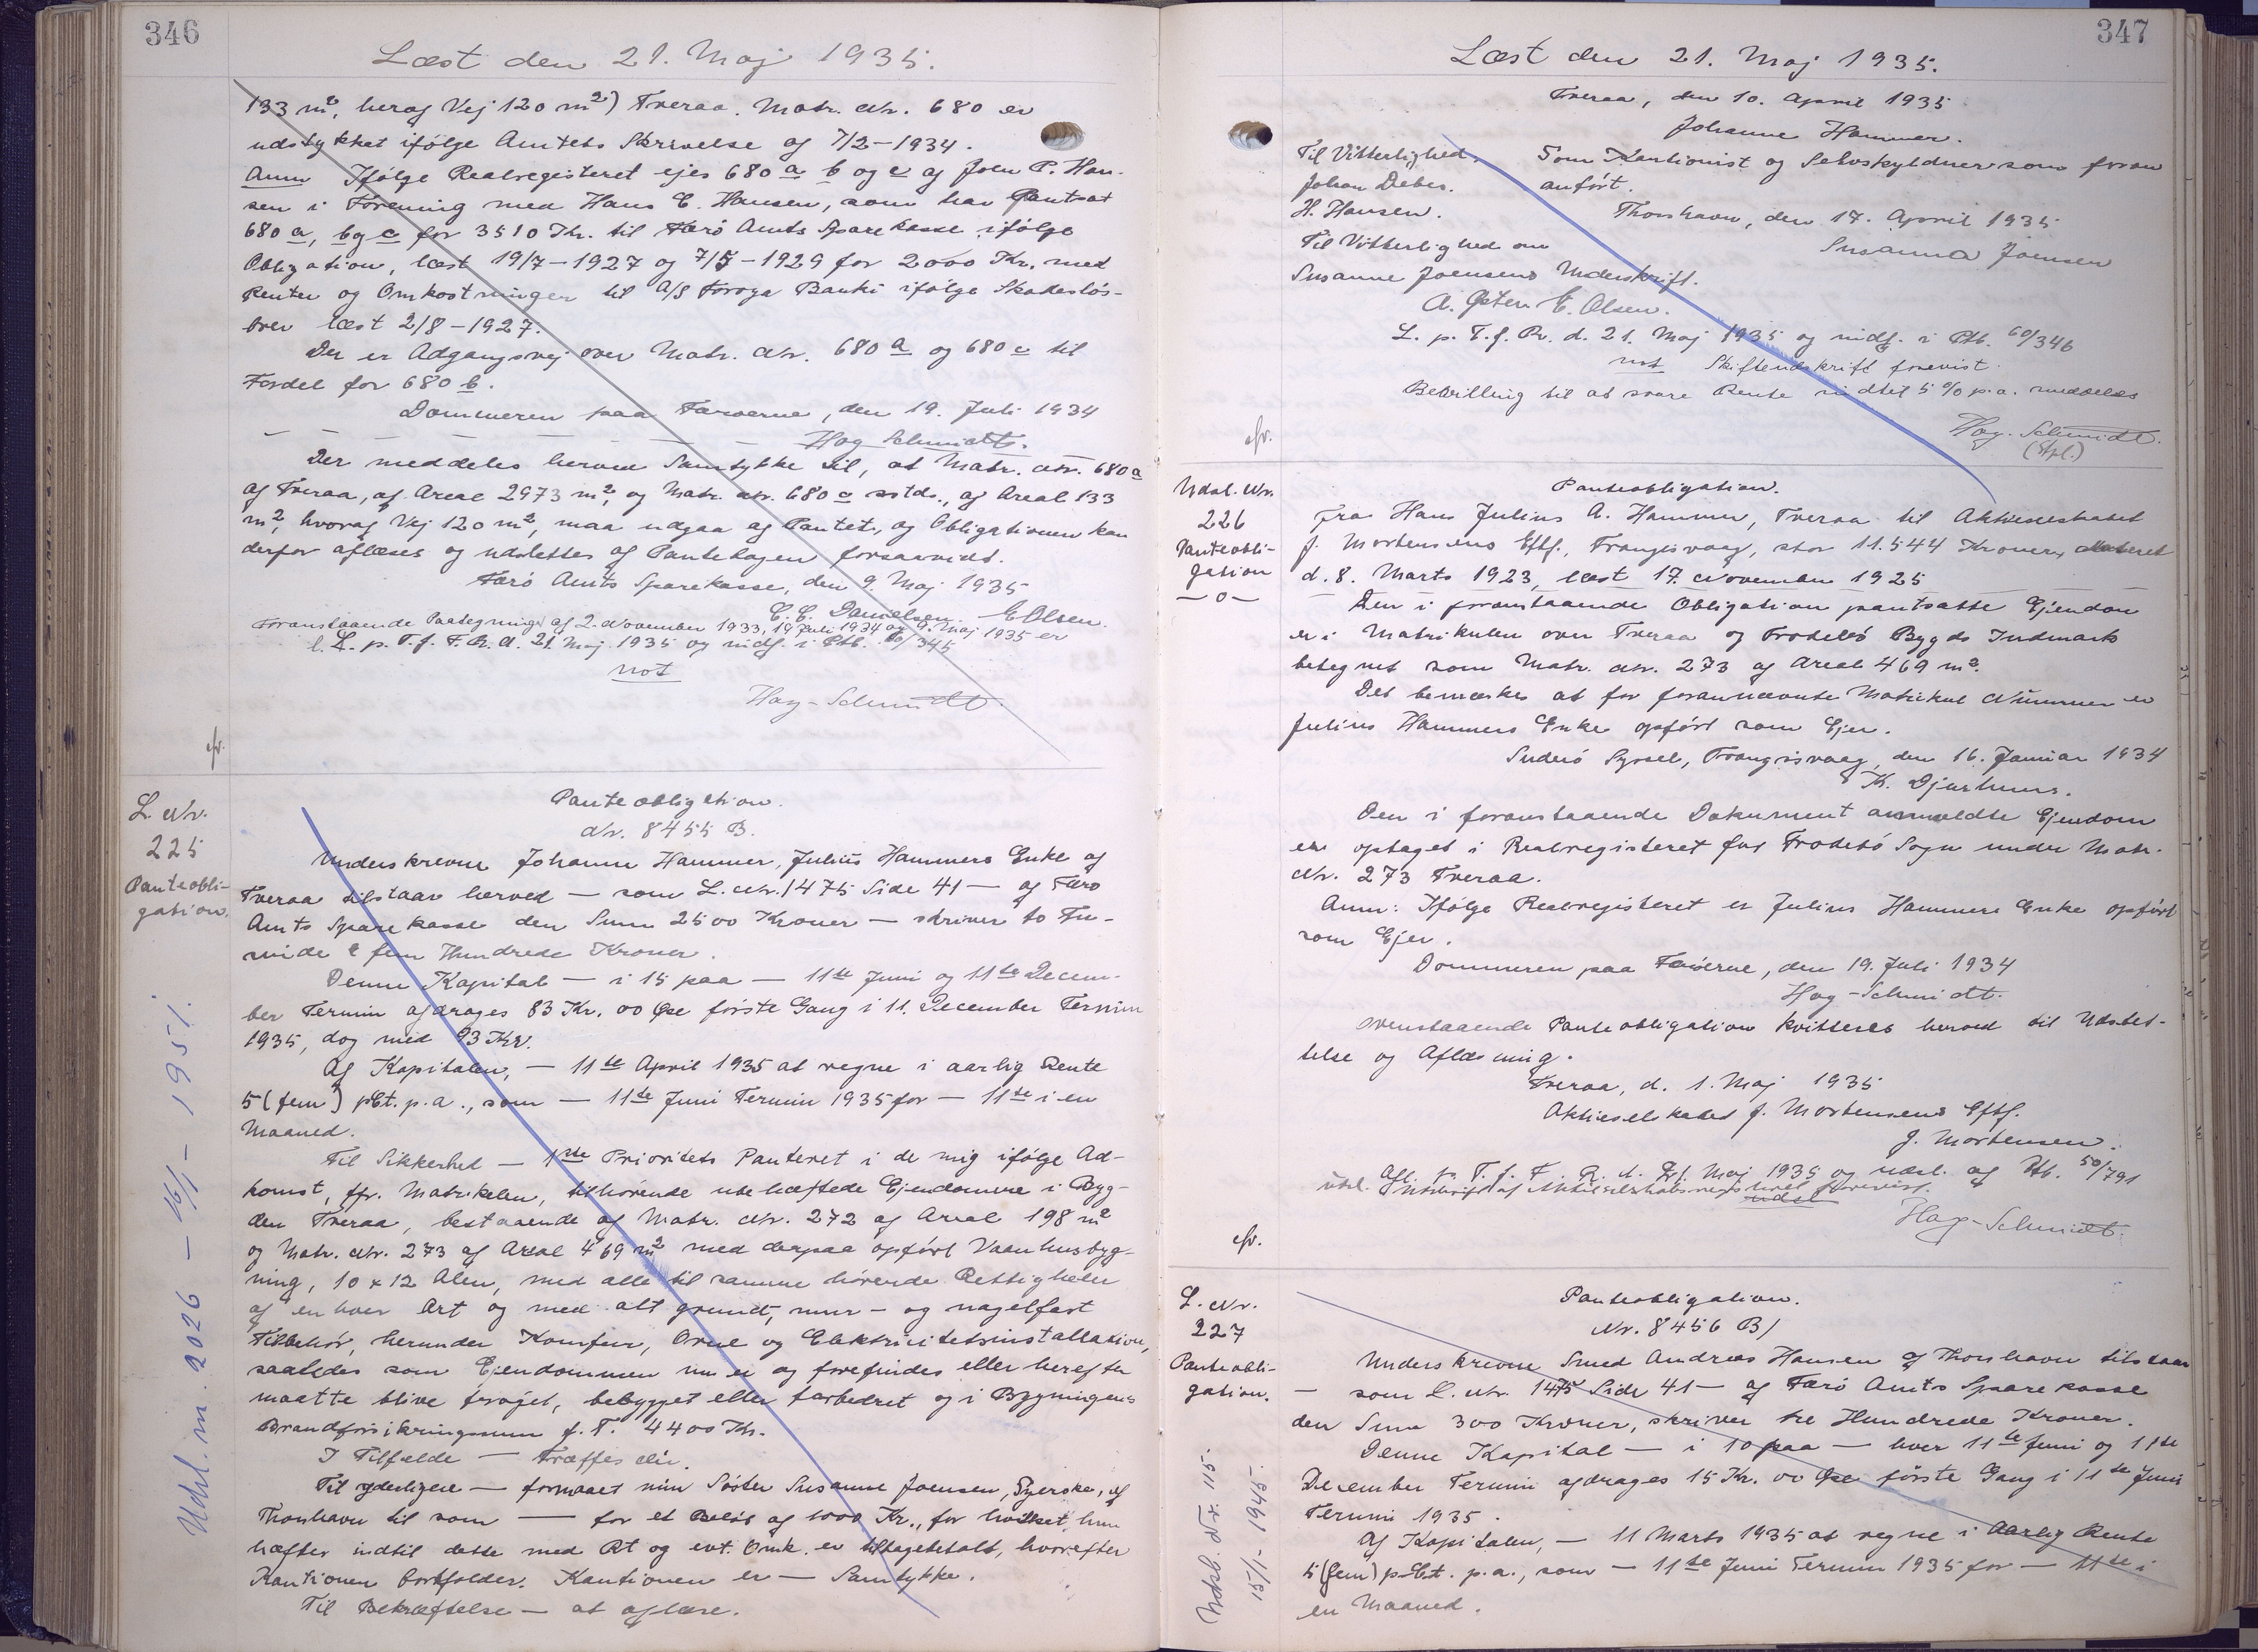 346
Læst den 21. Maj 1935.
133 m², heraf Vej 120 m²) Tveraa. Matr. Nr. 680 er
udstykket ifølge Amtets Skrivelse af 7/2-1934.
Anm Ifølge Realregisteret ejes 680 a b og c af Joen P. Han-
sen i Forening med Hans C. Hansen, som har pantsat
680 a, b og c for 3510 Kr. til Færø Amts Sparekasse ifølge
Obligation, læst 19/7-1927 og 7/5-1929 for 2000 Kr. med
Renter og Omkostninger til A/S Føroya Banki ifølge Skadesløs-
brev læst 2/8-1927.
Der er Adgangsvej over Matr. Nr. 680 a og 680 c til
Fordel for 680 b.
Dommeren paa Færøerne, den 19. Juli 1934
Hag Schmidt.
Der meddeles herved Samtykke til, at Matr. Nr. 680 a
af Tveraa, af Areal 2973 m², og Matr. Nr. 680 c sstds., af Areal 133
m², hvoraf Vej 120 m², maa udgaa af Pantet, og Obligationen kan
derfor aflæses og udslettes af Pantebogen forsaavidt.
Færø Amts Sparekasse, den 9. Maj 1935
C. C. Danielsen. E Olsen.
Foranstaaende Paategninger af 2. November 1933, 19 Juli 1934 og 9. Maj 1935 er
L. p. T. f. F. R. d. 21. Maj 1935 og indf. i Ptb. 60/345
not
Hag-Schmidt.
cfr.
L. Nr.
225
Panteobli-
gation.
Panteobligation.
Nr. 8455 B.
Underskrevne Johanne Hammer, Julius Hammers Enke af
Tveraa tilstaar herved — som L. Nr. 1475 Side 41 — af Færø
Amts Sparekasse den Sum 2500 Kroner — skriver to Tu-
sinde & fem Hundrede Kroner.
Denne Kapital — i 15 paa — 11te Juni og 11te Decem-
ber Termin afdrages 83 Kr. 00 Øre første Gang i 11. December Termin
1935, dog med 93 Kr.
Af Kapitalen, — 11te April 1935 at regne i aarlig Rente
5 (fem) pCt. p.a., som — 11te Juni Termin 1935 for — 11te i en
Maaned.
Til Sikkerhed — 1ste Prioritets Panteret i de mig ifølge Ad-
komst, jfr. Matrikelen, tilhørende ubehæftede Ejendomme i Byg-
den Tveraa, bestaaende af Matr. Nr. 272 af Areal 198 m²
og Matr. Nr. 273 af Areal 469 m² med derpaa opført Vaanhusbyg-
ning, 10 x 12 Alen, med alle til samme hørende Rettigheder
af enhver Art og med alt grund-, mur- og nagelfast
Tilbehør, herunder Komfur, Ovne og Elektricitetsinstallation,
saaledes som Ejendommen nu er og forefindes eller herefter
maatte blive forøjet, bebygget eller forbedret og i Bygningens
Brandforsikringssum f. T. 4400 Kr.
I Tilfælde — træffes elir.
Til yderligere — formaaet min Søster Susanne Joensen, Syerske, af
Thorshavn til som — for et Beløb af 1000 Kr., for hvilket hun
hæfter indtil dette med Rt og evt. Omk. er tilbagebetalt, hvorefter
Kautionen bortfalder. Kautionen er — Samtykke.
Til Bekræftelse — at aflæse.
Udsl. m. 2026 — 16/1 — 1951.
347
Læst den 21. Maj 1935.
Tveraa, den 10. April 1935
Johanne Hammer.
Til Vitterlighed.
Johan Debes.
H. Hansen.
Som Kautionist og Selvskyldner som foran
anført.
Thorshavn, den 17. April 1935
Susanna Joensen
Til Vitterlighed om
Susanne Joensens Underskrift.
A. Peter E. Olsen.
L. p. T. f. R. d. 21. Maj 1935 og indf. i Ptb. 60/346
not Skifteudskrift forevist.
Bevilling til at svare Rente indtil 5 % p.a. meddeles
Hag. Schmidt.
cfr.
Udsl. Nr.
226
Panteobli-
gation
—o—
Panteobligation.
fra Hans Julius A. Hammer, Tveraa til Aktieselskabet
J. Mortensens Eftf., Trangisvaag, stor 11.544 Kroner, dateret
d. 8. Marts 1923, læst 17. November 1925
Den i foranstaaende Obligation pantsatte Ejendom
er i Matrikulen over Tveraa og Frodebø Bygds Indmark
betegnet som Matr. Nr. 273 af Areal 469 m².
Det bemærkes at for forannævnte Matrikul Nummer er
Julius Hammers Enke opført som Ejer.
Suderø Syssel, Trangisvaag, den 16. Januar 1934
K. Djurhuus.
Den i foranstaaende Dokument anmeldte Ejendom
er optaget i Realregisteret for Frodebø Sogn under Matr.
Nr. 273 Tveraa.
Anm: Ifølge Realregisteret er Julius Hammers Enke opført
som Ejer.
Dommeren paa Færøerne, den 19. Juli 1934
Hag-Schmidt.
Ovenstaaende Panteobligation kvitteres herved til Udslet-
telse og Aflæsning.
Tveraa, d. 1. Maj 1935
Aktieselskabet J. Mortensens Eftf.
J. Mortensen.
Afl. p. T. f. F. R. d. 21. Maj 1935 og udsl. af Ptb. 50/791
udsl. Udskrift af Aktieselskabsregistret forevist.
udsl
Hag-Schmidt.
cfr.
L. Nr.
227
Panteobli-
gation.
Panteobligation.
Nr. 8456 B/
Underskrevne Smed Andreas Hansen af Thorshavn tilstaar
— som L. Nr. 1475 Side 41 — af Færø Amts Sparekasse
den Sum 300 Kroner, skriver tre Hundrede Kroner.
Denne Kapital — i 10 paa — hver 11te Juni og 11te
December Termin afdrages 15 Kr. 00 Øre første Gang i 11te Juni
Termin 1935.
Af Kapitalen, — 11 Marts 1935 at regne i aarlig Rente
5 (fem) p.Ct. p.a., som — 11te Juni Termin 1935 for — 11te i
en Maaned.
Udsl. Nr. 115.
15/1-1945.